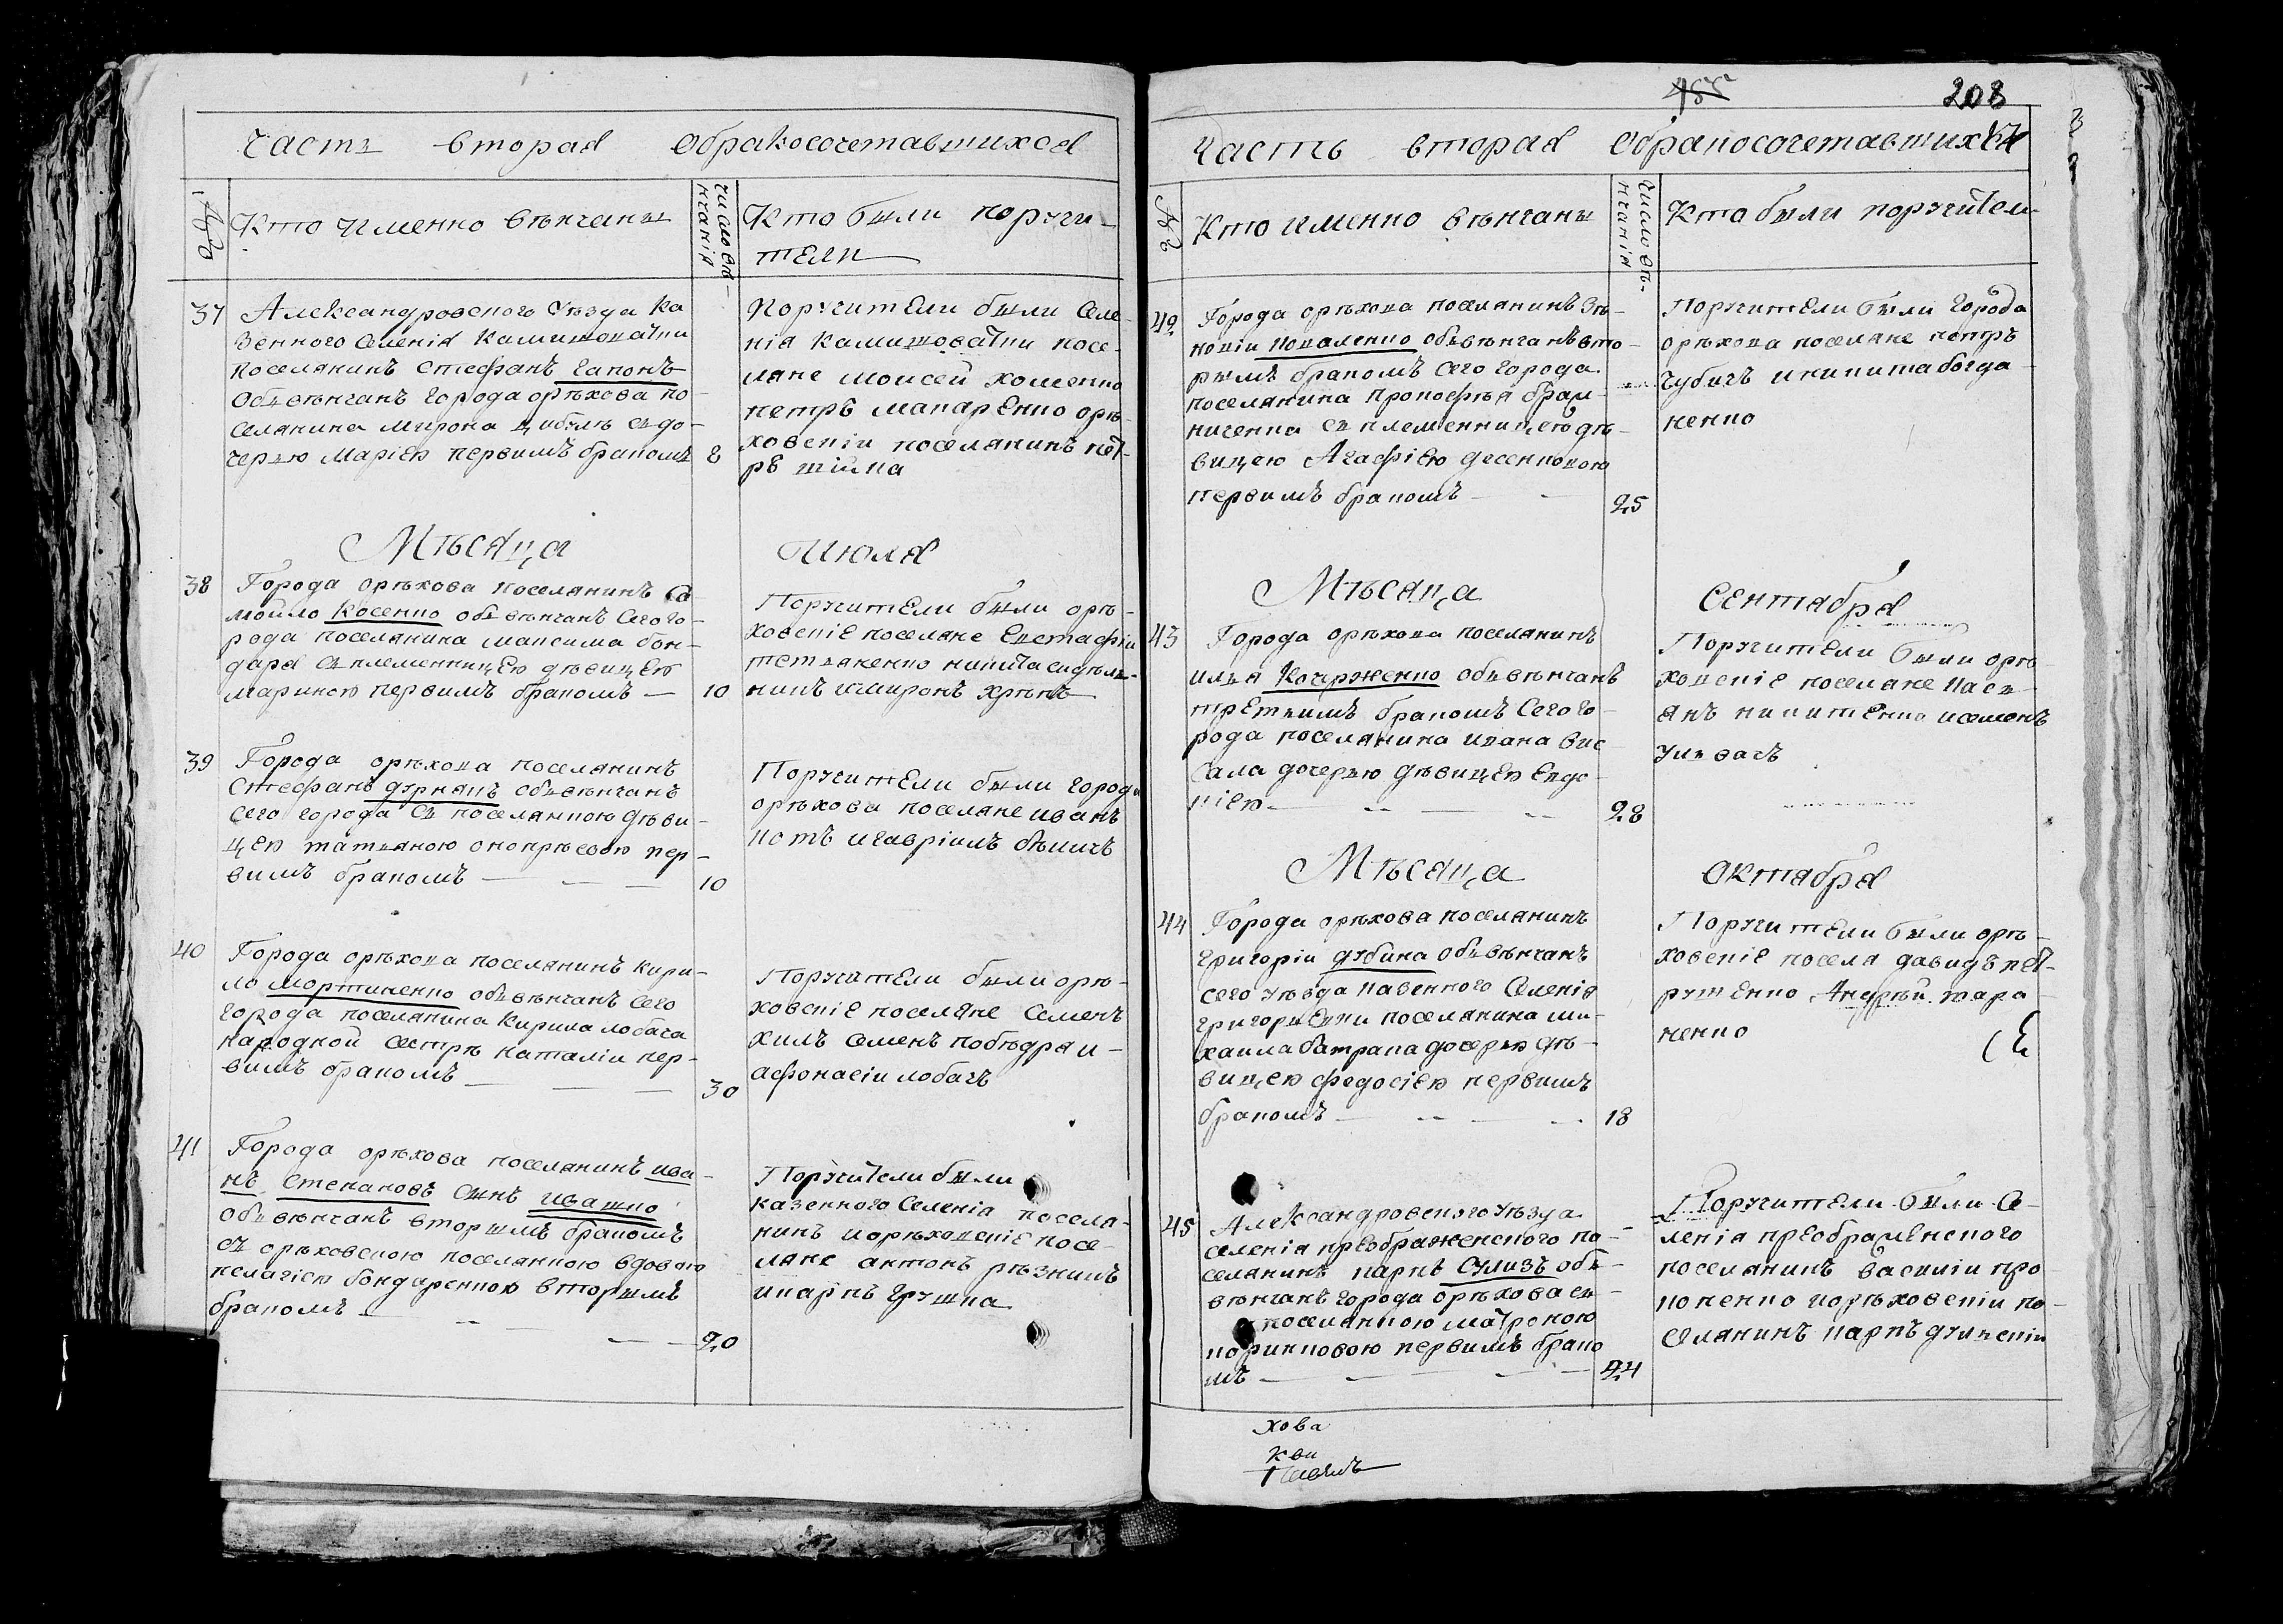 Часть вторая обракосочетавшихся
№
Кто именно вѣнчаны
число вѣнчанія
Кто были поручи-
тели
37
Александровского уѣзда ка
зенного селенія камишоватки
поселянинъ стефанъ гапонъ
обвѣнчанъ города орѣхова по-
селянина мирона цибулѣ съ до-
черью маріею первимъ бракомъ
8
Поручители были селе-
нія камишоватки посе-
ляне моисей хоменко
петръ макаренко орѣ-
ховскіи поселянинъ пет-
ръ шійка
Мѣсяца Июля
38
Города орѣхова поселянинъ са
мойло косенко обвѣнчанъ сего го-
рода поселянина максима бон-
даря съ племенницею дѣвицею
мариною первимъ бракомъ
10
Поручители были орѣ-
ховскіе поселяне евстафіи
никита сидѣль-
никъ имиронъ хрѣнъ
39
Города орѣхова поселянинъ
стефанъ дурнякъ обвѣнчанъ
сего города съ поселянкою дѣви-
цею татьяною онопрѣевою пер-
вимъ бракомъ
10
Поручители были города
орѣхова поселяне иванъ
котъ игавріилъ бѣликъ
40
Города орѣхова поселянинъ кири-
ло мортиненко обвѣнчанъ сего
города поселянина кирила лобача
народной сестрѣ наталіи пер-
вимъ бракомъ
30
Поручители были орѣ-
ховскіе поселяне семенъ
хилъ семенъ побѣдра и-
афонасіи лобачъ
41
Города орѣхова поселянинъ ива-
нъ степановъ сынъ ивашко
обвѣнчанъ вторымъ бракомъ
съ орѣховскою поселянкою вдовою
пелагіею бондаренкою вторымъ
бракомъ
20
Поручители были
казенного селенія поселя-
никъ иорѣховскіе посе-
ляне антонъ рѣзникъ
икарпъ грушка
455
208
Часть вторая обракосочетавшихся
№
Кто именно вѣнчаны
число вѣ-
нчанія
Кто были поручители
42
Города орѣхова поселянинъ зѣ-
новіи коваленко обвѣнчанъ вто-
рымъ бракомъ сего города
поселянина прокофія брай-
ниченка съ племенницею дѣ-
вицею Агафіею
первимъ бракомъ
25
Поручители были города
орѣхова поселяне петръ
чубичъ иникита богда-
ненко
Мѣсяца Сентября
43
Города орѣхова поселянинъ
илья кочерженко обвѣнчанъ
третьимъ бракомъ сего го-
рода поселянина ивана вис
сала дочерью дѣвицею евдо-
кіею
28
Поручители были орѣ-
ховскіе поселяне касъ-
янъ никитенко исеменъ
Мѣсяца Октября
44
Города орѣхова поселянинъ
григоріи дубина обвѣнчанъ
сего уѣзда казенного селенія
григорьевки поселянина ми-
хаила батрака дочерью дѣ-
вицею федосіею первимъ
бракомъ
18
Поручители были орѣ-
ховскіе поселя давидъ пет-
рушенко Андрѣи тара-
ненко
45
Александровского уѣзда
селенія преображенского по-
селянинъ карпъ сулизъ обь-
вѣнчанъ города орѣхова съ
поселянкою матроною
первимъ брако
мъ
24
Поручители были се-
ленія преображенского
поселянинъ василіи про
копенко иорѣховскіи по-
селянинъ карпъ
хова